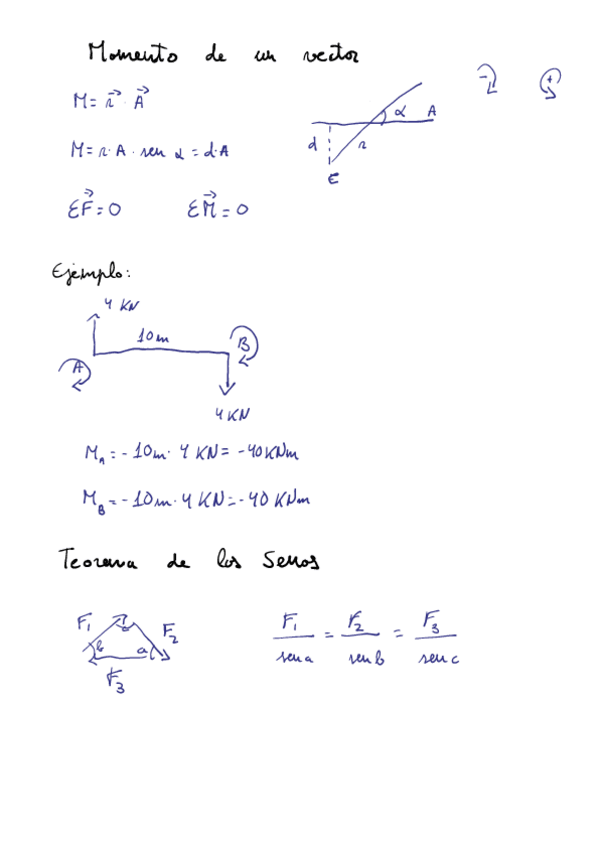 Momento de un vector
M = r⃗ · A⃗
- +
α A
d r
M = r · A · sen α = d · A
E
ΣF⃗ = 0 ΣM⃗ = 0
Ejemplo:
4 KN
10m
A B
4 KN
M_A = - 10m · 4 KN = - 40 KNm
M_B = - 10m · 4 KN = - 40 KNm
Teorema de los Senos
F₁ F₂
b c a
F₃
F₁ / sen a = F₂ / sen b = F₃ / sen c